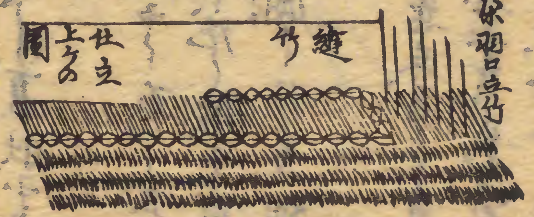 羽口立竹
縫竹
仕立
上ケの
圖